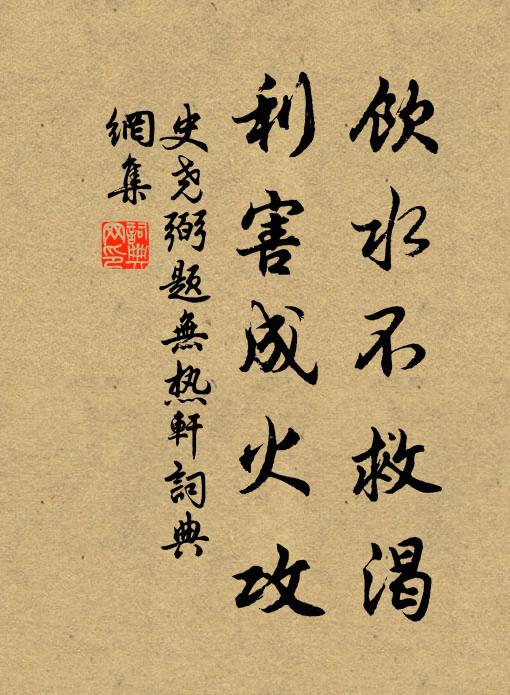 飲水不救渴
利害成火攻
史尧弼题無热軒詞典
網集
詞典
网印